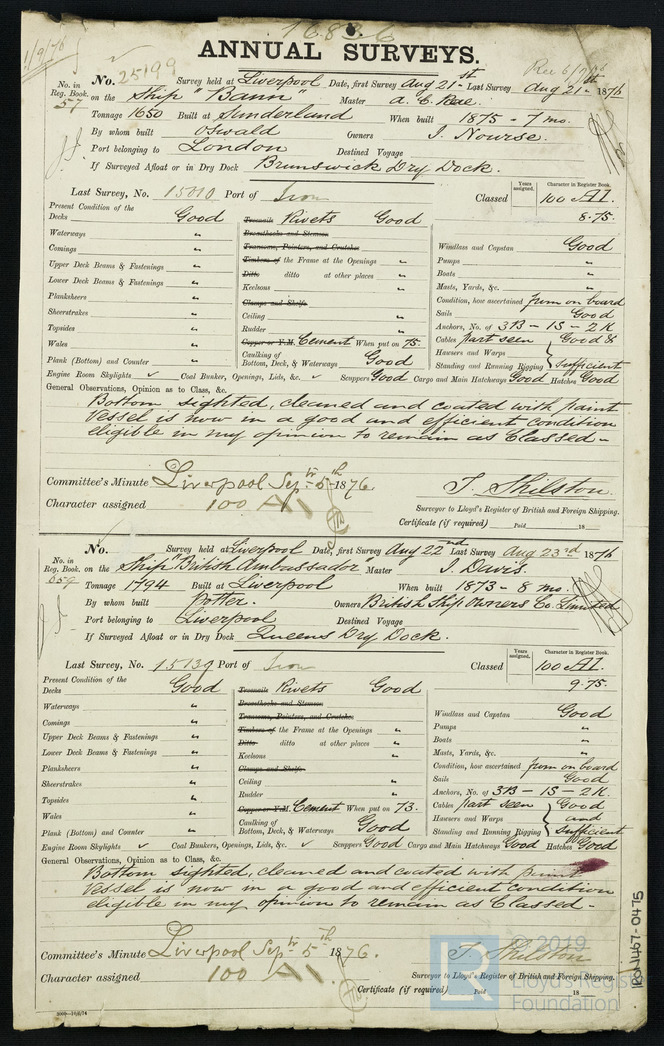 1683 6
ANNUAL SURVEYS.
1/9/76
Rec 6/9/76
No. 25199 Survey held at Liverpool Date, first Survey Aug 21st Last Survey Aug 21st 1876
No. in Reg. Book 57 on the Ship "Bann" Master A. C. Rae.
Tonnage 1650 Built at Sunderland When built 1875 - 7 mo.
By whom built Oswald Owners J. Nourse.
Port belonging to London Destined Voyage
If Surveyed Afloat or in Dry Dock Brunswick Dry Dock.
Last Survey, No. 15010 Port of Iron Classed Years assigned. Character in Register Book. 100 A1.
8.75.
Present Condition of the
Decks Good
Waterways "
Comings "
Upper Deck Beams & Fastenings "
Lower Deck Beams & Fastenings "
Planksheers "
Sheerstrakes "
Topsides "
Wales "
Plank (Bottom) and Counter "
Treenails Rivets Good
Breasthooks and Stemson
Transoms, Pointers, and Crutches
Timbers of the Frame at the Openings "
Ditto ditto at other places "
Keelsons "
Clamps and Shelfs
Ceiling "
Rudder "
Copper or Y.M. Cement When put on 75.
Caulking of Bottom, Deck, & Waterways Good
Windlass and Capstan Good
Pumps "
Boats "
Masts, Yards, &c. "
Condition, how ascertained from on board
Sails Good
Anchors, No. of 3B - 1S - 2K
Cables part seen Good &
Hawsers and Warps
Standing and Running Rigging sufficient
Engine Room Skylights ✓ Coal Bunker, Openings, Lids, &c. ✓ Scuppers Good Cargo and Main Hatchways Good Hatches Good
General Observations, Opinion as to Class, &c.
Bottom sighted, cleaned and coated with paint
Vessel is now in a good and efficient condition
eligible in my opinion to remain as Classed -
Committee's Minute Liverpool Sepr 5th 1876.
Character assigned 100 A1
T. Shilston.
Surveyor to Lloyd's Register of British and Foreign Shipping.
Certificate (if required) Paid 18
No. Survey held at Liverpool Date, first Survey Aug 22nd Last Survey Aug 23rd 1876
No. in Reg. Book 659 on the Ship "British Ambassador" Master J. Davis.
Tonnage 1794 Built at Liverpool When built 1873 - 8 mo.
By whom built Potter. Owners British Ship Owners Co. Limited
Port belonging to Liverpool Destined Voyage
If Surveyed Afloat or in Dry Dock Queens Dry Dock.
Last Survey, No. 15139 Port of Iron Classed Years assigned. Character in Register Book. 100 A1.
9.75.
Present Condition of the
Decks Good
Waterways "
Comings "
Upper Deck Beams & Fastenings "
Lower Deck Beams & Fastenings "
Planksheers "
Sheerstrakes "
Topsides "
Wales "
Plank (Bottom) and Counter "
Treenails Rivets Good
Breasthooks and Stemson
Transoms, Pointers, and Crutches
Timbers of the Frame at the Openings "
Ditto ditto at other places "
Keelsons "
Clamps and Shelfs
Ceiling "
Rudder "
Copper or Y.M. Cement When put on 73.
Caulking of Bottom, Deck, & Waterways Good
Windlass and Capstan Good
Pumps "
Boats "
Masts, Yards, &c. "
Condition, how ascertained from on board
Sails Good
Anchors, No. of 3B - 1S - 2K.
Cables part seen Good
Hawsers and Warps and
Standing and Running Rigging Sufficient
Engine Room Skylights ✓ Coal Bunkers, Openings, Lids, &c. ✓ Scuppers Good Cargo and Main Hatchways Good Hatches Good
General Observations, Opinion as to Class, &c.
Bottom sighted, cleaned and coated with paint
Vessel is now in a good and efficient condition
eligible in my opinion to remain as Classed -
Committee's Minute Liverpool Sepr 5th 1876.
Character assigned 100 A1
T. Shilston
Surveyor to Lloyd's Register of British and Foreign Shipping.
Certificate (if required) Paid 18
© 2019
Lloyd's Register
Foundation
IRON467-0475